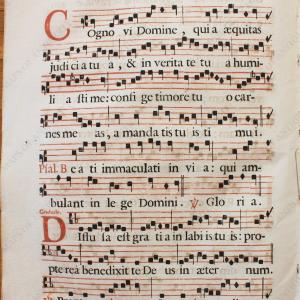 COgno vi Domine, qui a æquitas
judi ci a tu a, & in verita te tu a humi-
li a sti me: confi ge timore tu o car-
nes me as, a manda tis tu is ti mu i.
Psal. B e a ti immaculati in vi a: qui am-
bulant in le ge Domini. ℣. Glo ri a.
Graduale.
DIffu sa est gra ti a in labi is tu is: pro-
pte rea benedixit te De us in æter num.